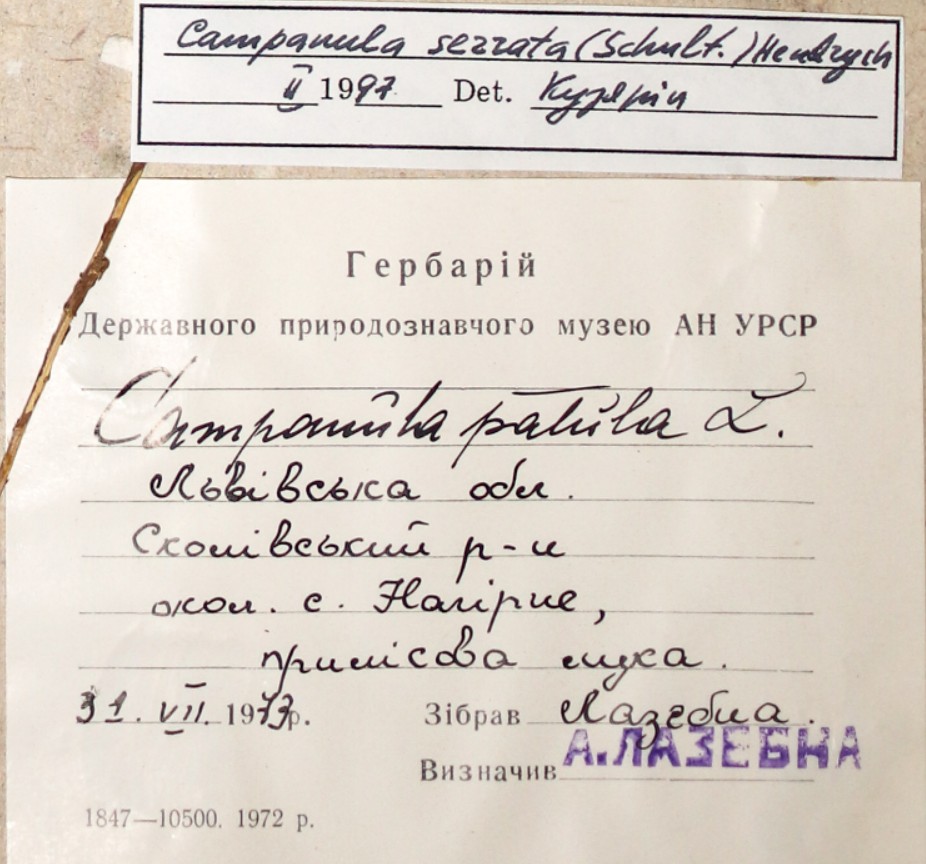 Campanula serrata (Schult.) Hendrych
II 1997 Det. Кузярін
Гербарій
Державного природознавчого музею АН УРСР
Campanula patula L.
Львівська обл.
Сколівський р-н
окол. с. Нагірне,
прилісова лука.
31. VII. 1973р. Зібрав Лазебна.
Визначив А.ЛАЗЕБНА
1847—10500. 1972 р.